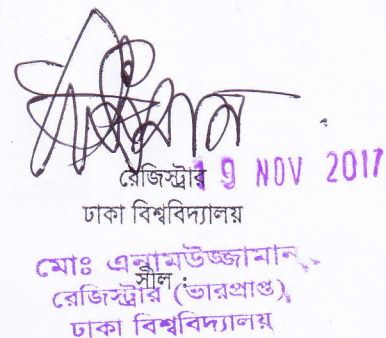 রেজিস্ট্রার 19 NOV 2017
ঢাকা বিশ্ববিদ্যালয়
মোঃ এনামউজ্জামান
সীল :
রেজিস্ট্রার (ভারপ্রাপ্ত)
ঢাকা বিশ্ববিদ্যালয়